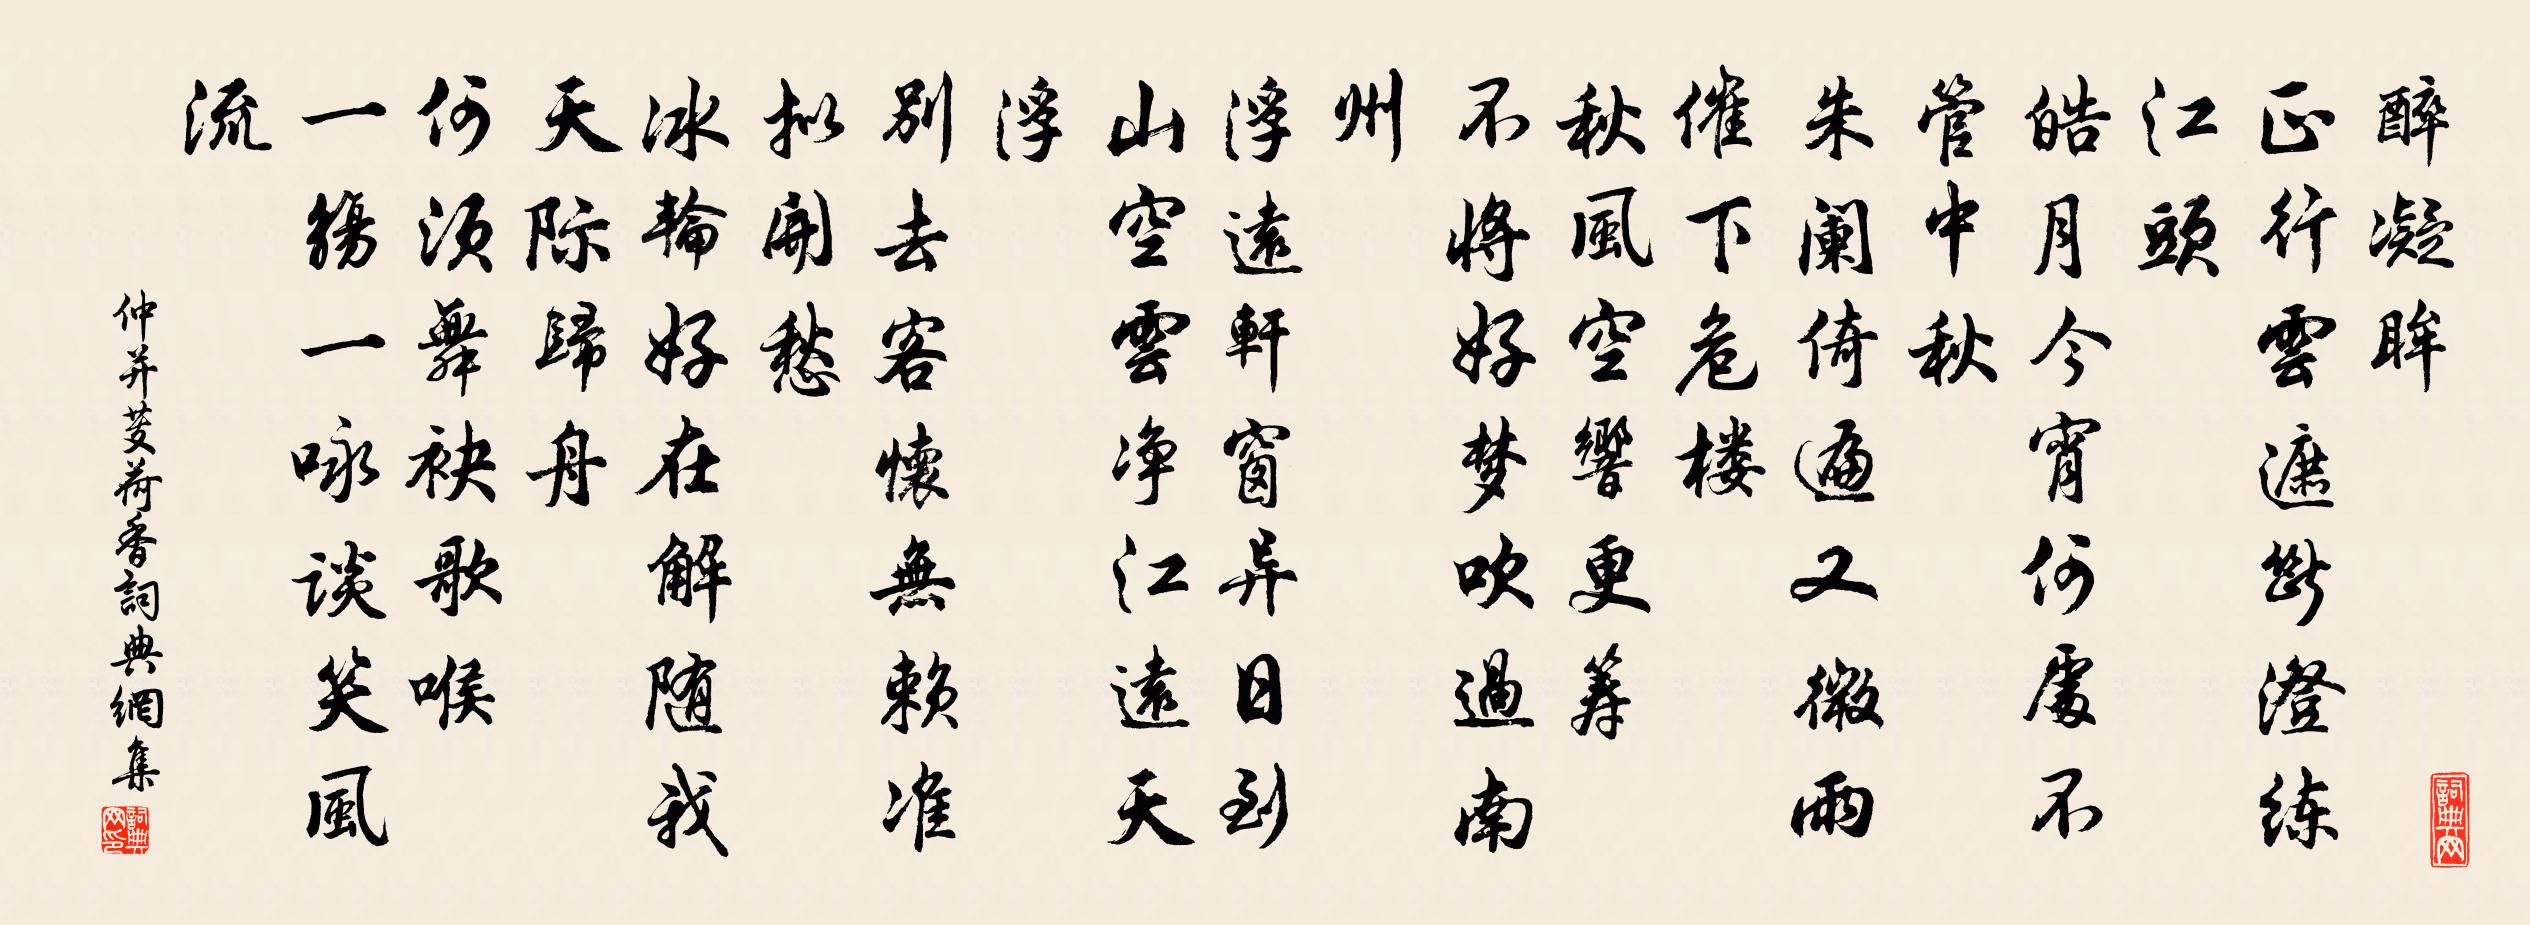 醉凝眸
正行雲遮斷澄练
江頭
皓月今宵何處不
管中秋
朱阑倚遍又微雨
催下危楼
秋風空響更筹
不將好梦吹過南
州
浮遠軒窗异日到
山空雲净江遠天
浮
别去客懷無赖准
拟開愁
冰輪好在解随我
天际歸舟
何須舞袂歌喉
一觴一咏谈笑風
流
仲并芰荷香詞典網集
詞典网印
詞典网